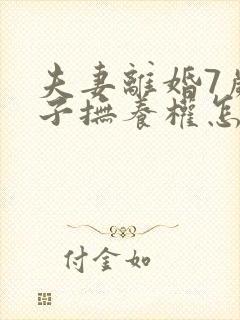 夫妻離婚7歲
子撫養權怎
付金如